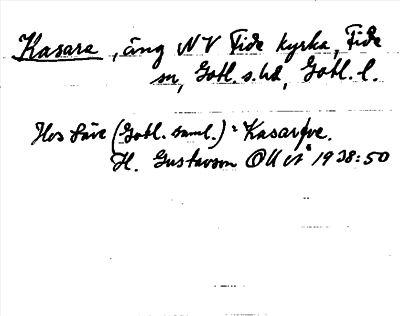 Kasara, äng NV Fide kyrka, Fide
sn, Gotl. s. hd, Gotl. l.
Hos Säve (Gotl. saml.): Kasarve.
H. Gustavson 1938:50